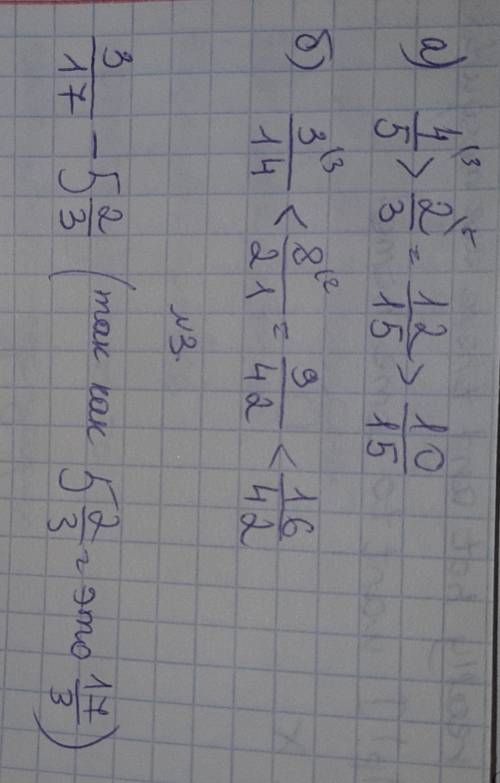 а) 4/5 \3 > 2/3 \5 = 12/15 > 10/15
б) 3/14 \3 < 8/21 \2 = 9/42 < 16/42
№3.
3/17 - 5 2/3 (так как 5 2/3 - это 17/3)